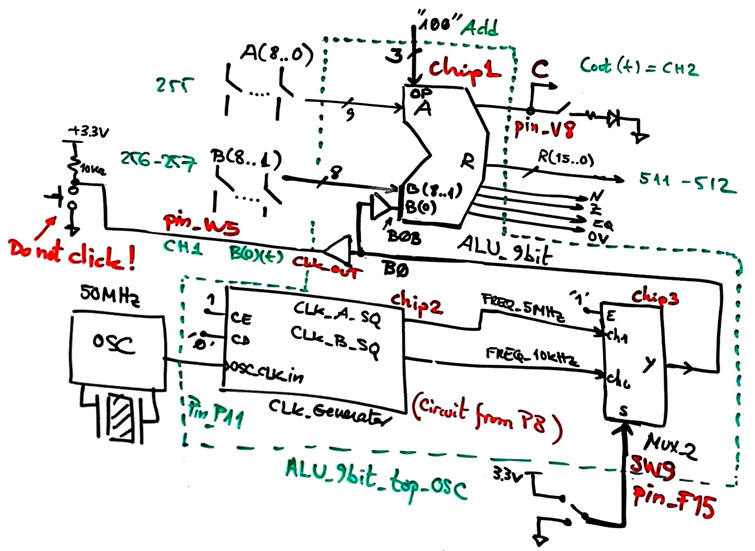 "100" Add
A(8..0)
3
chip1
C
Cout(t) = CH2
255
OP
A
9
pin_V8
+3.3V
10kΩ
256-257
B(8..1)
8
R
R(15..0)
511-512
B(8..1)
B(0)
N
Z
EQ
OV
pin_W5
B0B
ALU_9bit
Do not click!
CH1
B(0)(t)
CLK_OUT
B0
50MHz
1
CLK_A_SQ
chip2
FREQ_5MHz
"1"
chip3
CE
E
OSC
"0"
CD
CLK_B_SQ
Ch1
FREQ_10kHz
Y
OSC_CLK_in
Ch0
Pin_P11
CLK_Generator
(Circuit from P8)
S
MUX_2
ALU_9bit_top_OSC
3.3V
SW9
pin_F15